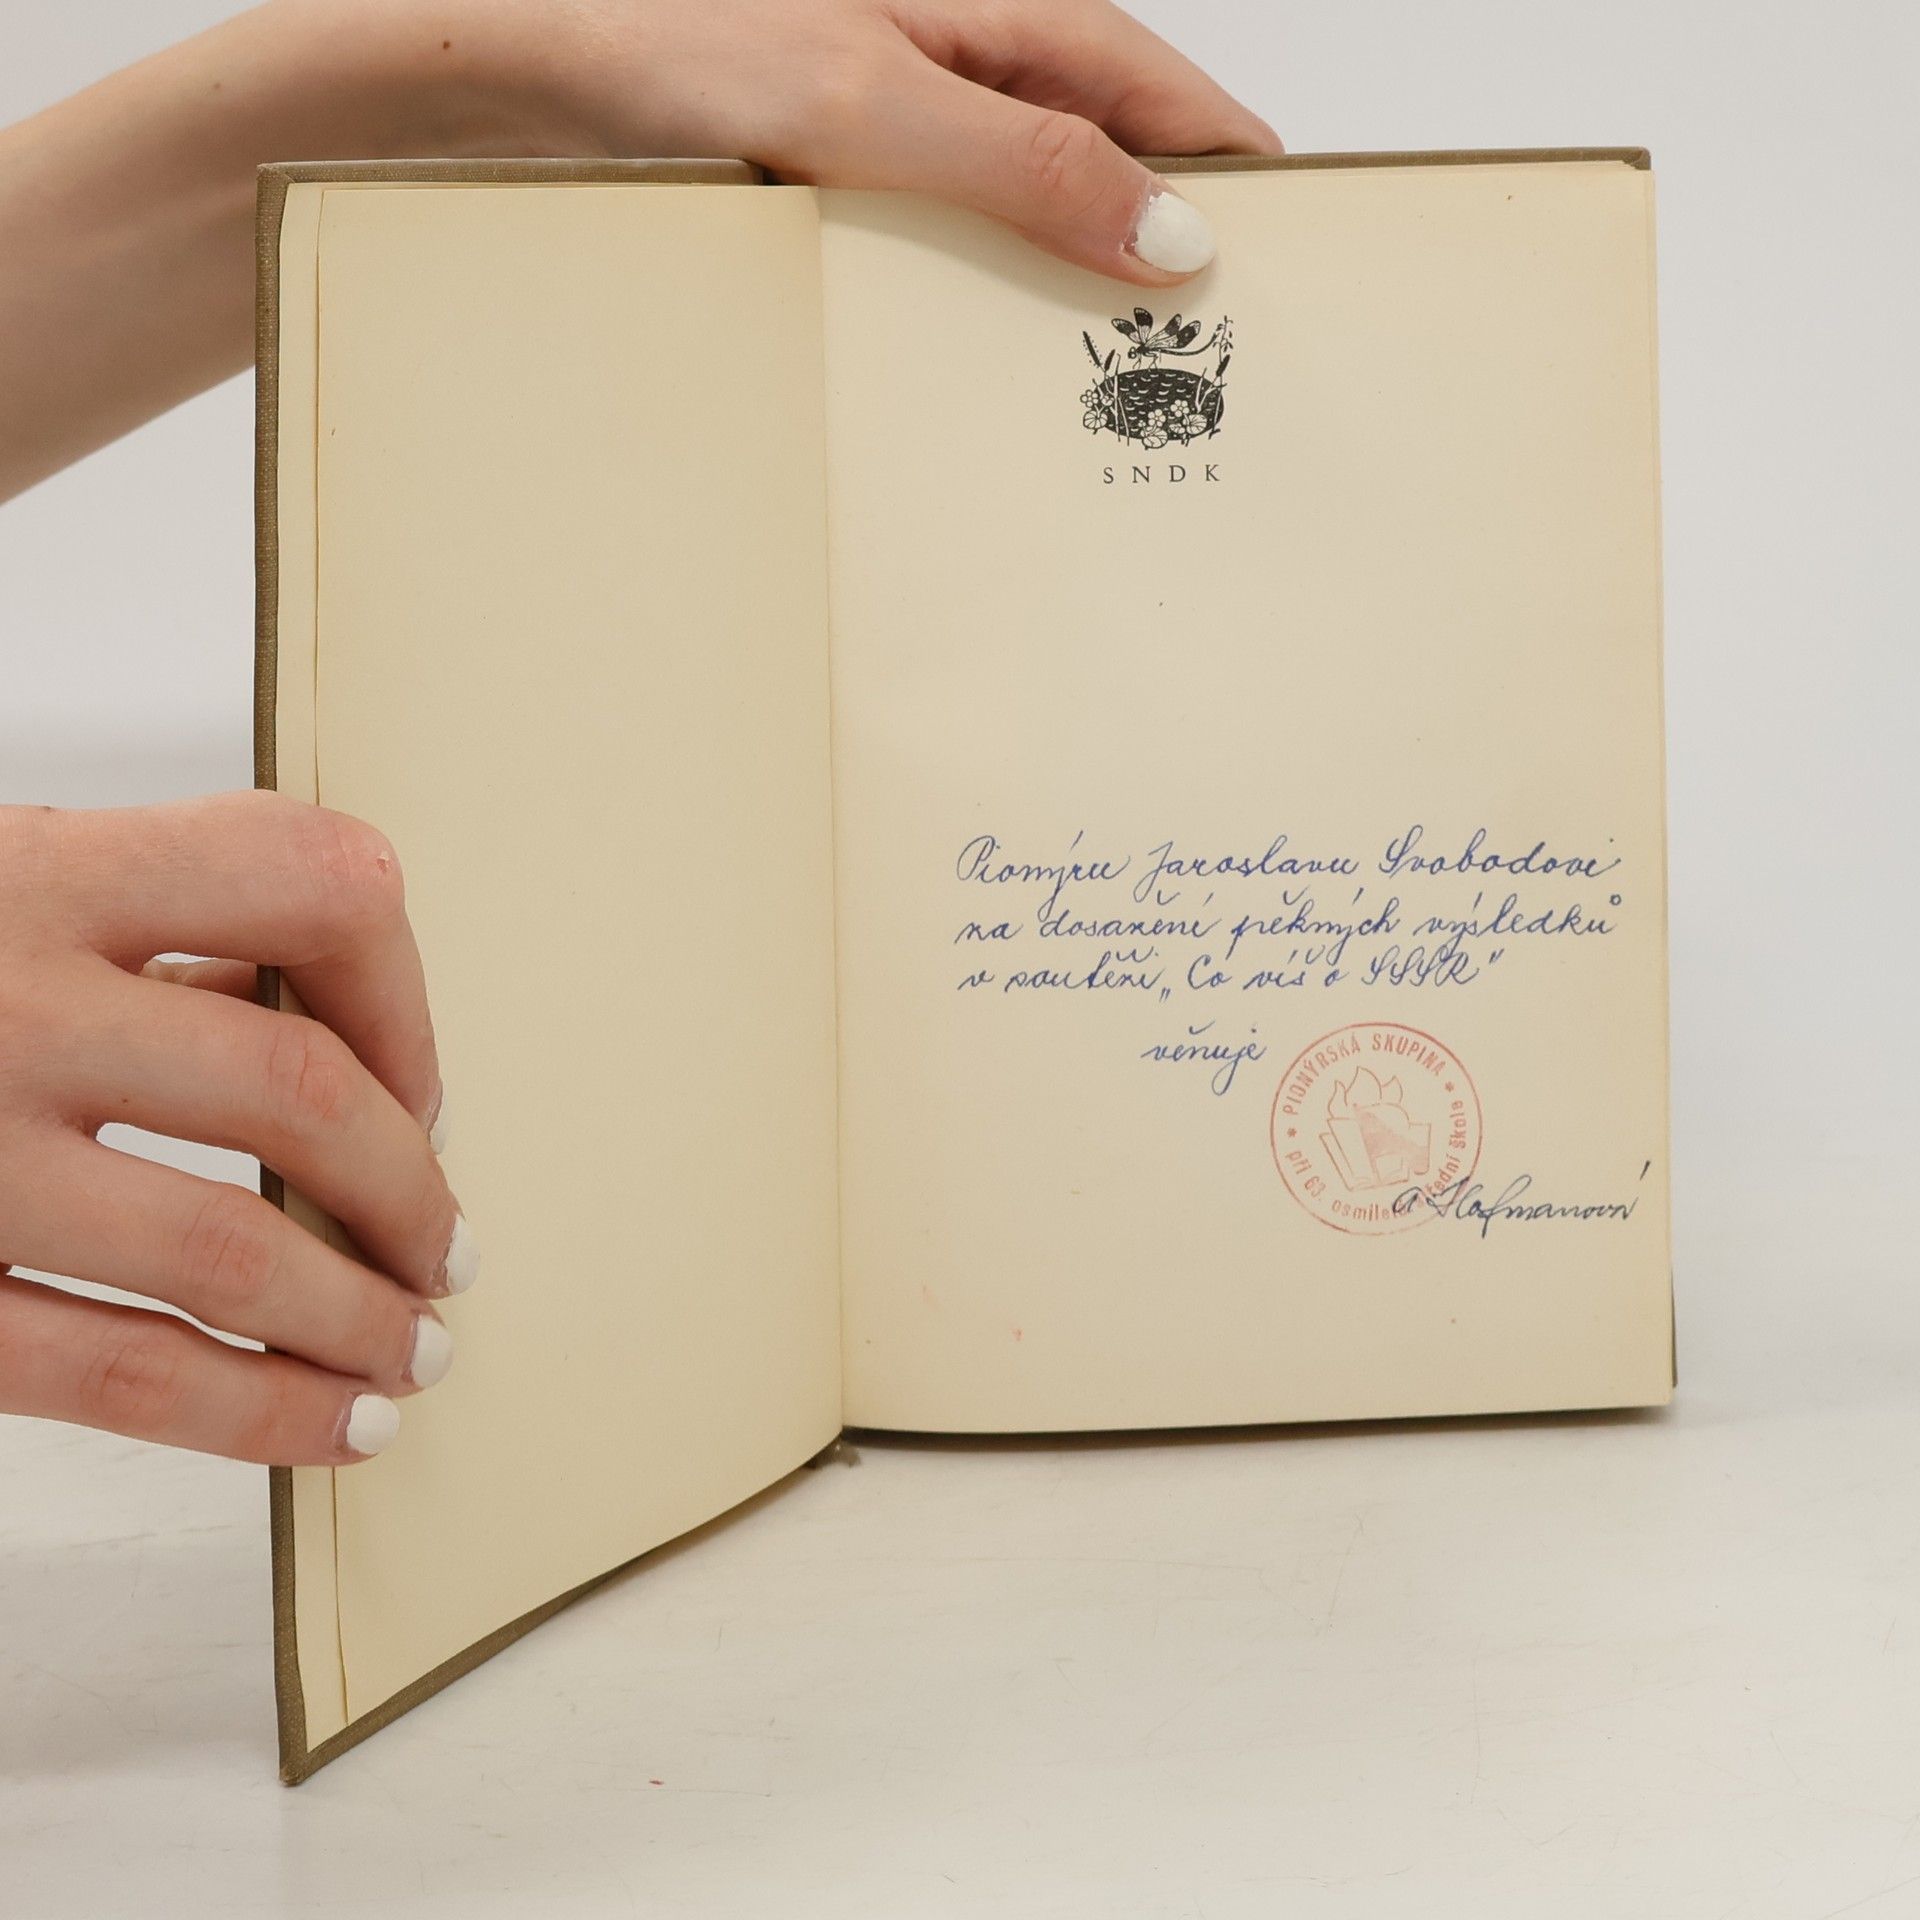 SNDK
Pionýru Jaroslavu Svobodovi
za dosažení pěkných výsledků
v soutěži „Co víš o SSSR"
věnuje
* PIONÝRSKÁ SKUPINA *
při 63. osmileté střední škole
Hofmanová